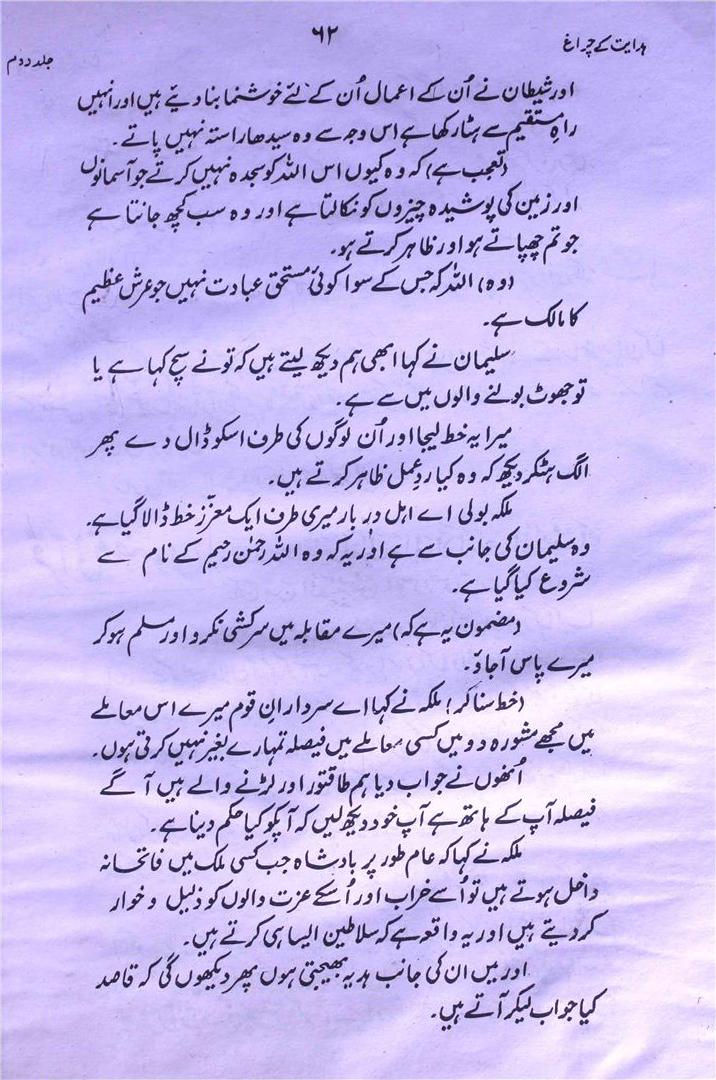 ہدایت کے چراغ
۶۲
جلد دوم
اور شیطان نے اُن کے اعمال اُن کے لئے خوشنما بنا دیئے ہیں اور انہیں
راہِ مستقیم سے ہٹا رکھا ہے اس وجہ سے وہ سیدھا راستہ نہیں پاتے۔
(تعجب ہے) کہ وہ کیوں اس اللہ کو سجدہ نہیں کرتے جو آسمانوں
اور زمین کی پوشیدہ چیزوں کو نکالتا ہے اور وہ سب کچھ جانتا ہے
جو تم چھپاتے ہو اور ظاہر کرتے ہو۔
(وہ) اللہ کہ جس کے سوا کوئی مستحق عبادت نہیں جو عرش عظیم
کا مالک ہے۔
سلیمان نے کہا ابھی ہم دیکھ لیتے ہیں کہ تو نے سچ کہا ہے یا
تو جھوٹ بولنے والوں میں سے ہے۔
میرا یہ خط لیجا اور اُن لوگوں کی طرف اسکو ڈال دے پھر
الگ ہٹکر دیکھ کہ وہ کیا ردِ عمل ظاہر کرتے ہیں۔
ملکہ بولی اے اہل دربار میری طرف ایک معزّز خط ڈالا گیا ہے۔
وہ سلیمان کی جانب سے ہے اور یہ کہ وہ اللہ رحمٰن رحیم کے نام سے
شروع کیا گیا ہے۔
(مضمون یہ ہے کہ) میرے مقابلہ میں سرکشی نکرو اور مسلم ہو کر
میرے پاس آجاؤ۔
(خط سنا کر) ملکہ نے کہا اے سردارانِ قوم میرے اس معاملے
میں مجھے مشورہ دو میں کسی معاملے میں فیصلہ تمہارے بغیر نہیں کرتی ہوں۔
اُنھوں نے جواب دیا ہم طاقتور اور لڑنے والے ہیں آگے
فیصلہ آپ کے ہاتھ ہے آپ خود دیکھ لیں کہ آپکو کیا حکم دینا ہے۔
ملکہ نے کہا کہ عام طور پر بادشاہ جب کسی ملک میں فاتحانہ
داخل ہوتے ہیں تو اُسے خراب اور اُسکے عزت والوں کو ذلیل و خوار
کر دیتے ہیں اور یہ واقعہ ہے کہ سلاطین ایسا ہی کرتے ہیں۔
اور میں ان کی جانب ہدیہ بھیجتی ہوں پھر دیکھوں گی کہ قاصد
کیا جواب لیکر آتے ہیں۔